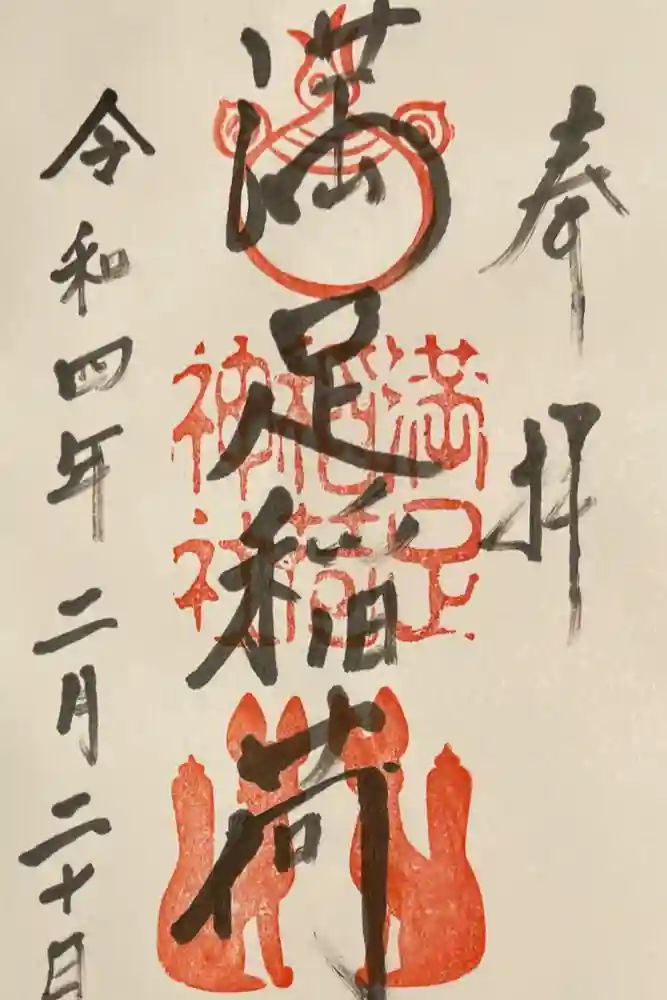 奉拝
満足稲荷
満足
稲荷
神社
令和四年二月二十日